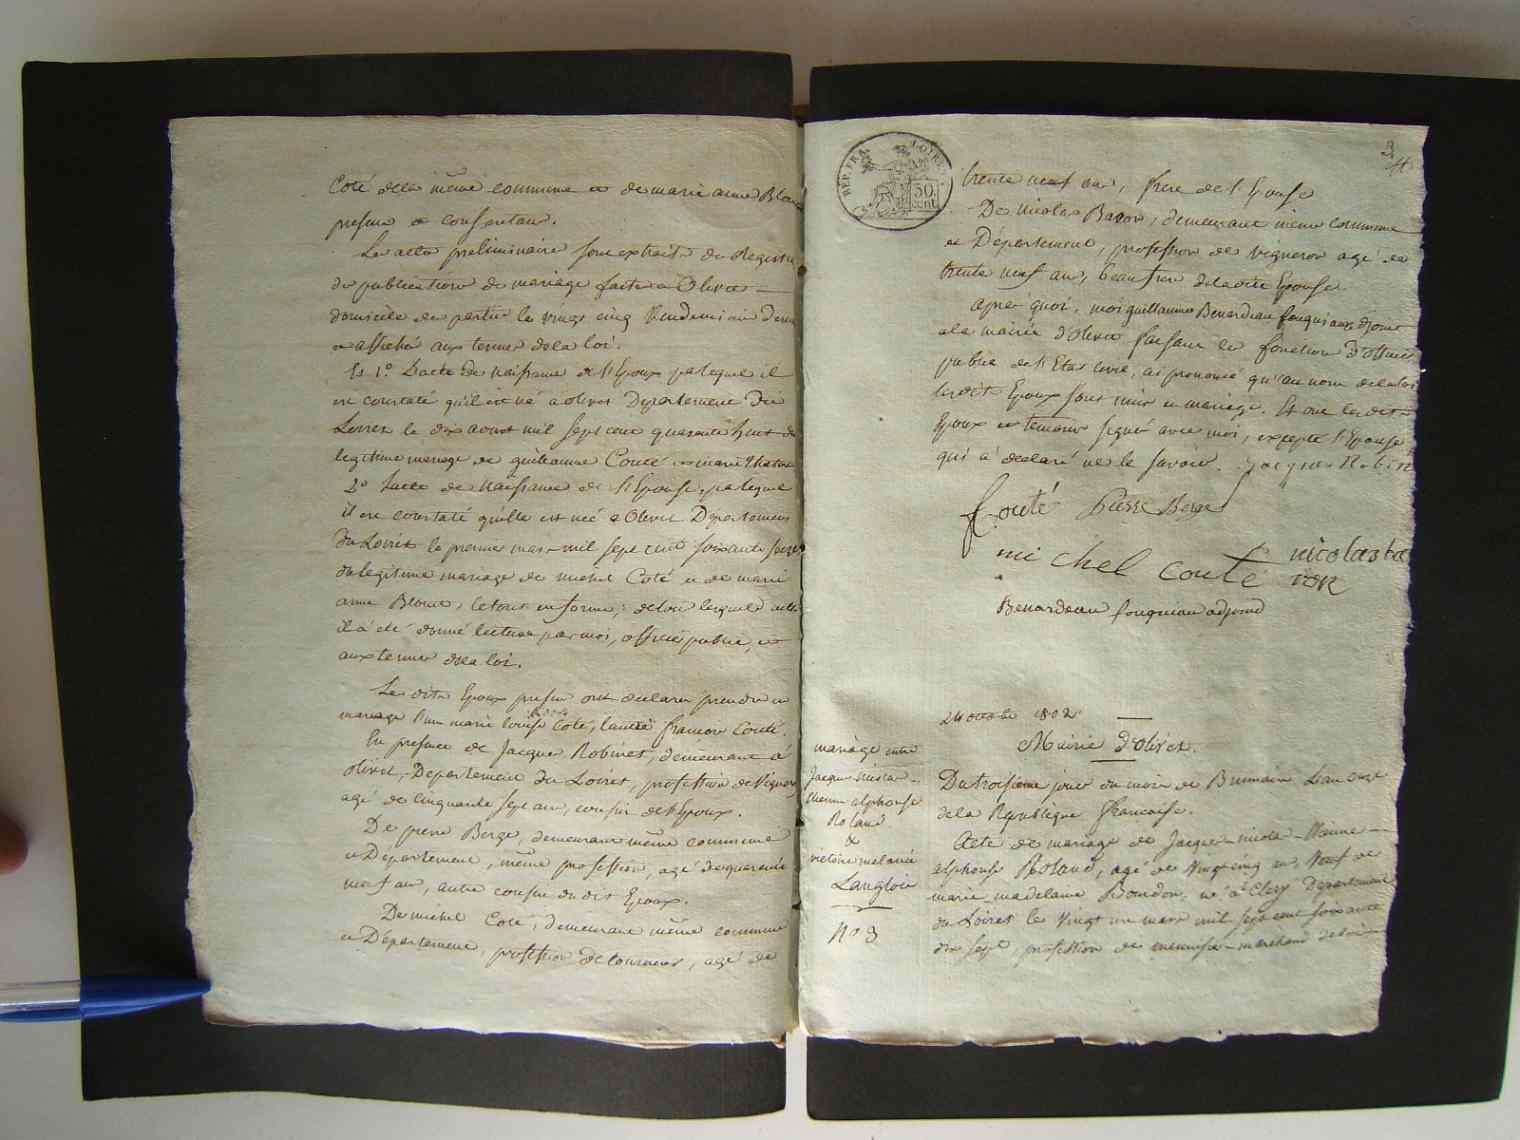 Coté de la même commune et de marie anne Blanc
presens et consentans.
Les actes preliminaires sont extraits du Registre
de publications de mariage faites a Olivet
domicile des parties le vingt cinq Vendemiaire dernier
et affiché aux termes de la loi.
Et 1° L'acte de naissance de l'Epoux par lequel il
est constaté qu'il est né a olivet Departement du
Loiret le dix aout mil sept cent quarante huit du
legitime mariage de guillaume Couté et marie
2° Lacte de Naissance de l'Epouse, par lequel
il est constaté qu'elle est née a Olivet Département
du Loiret le premier mars mil sept cent soixante
du legitime mariage de michel Coté et de marie
anne Blanc, le tout en forme; de tous lesquels actes
il a été donné lecture par moi, officier public, et
aux termes de la loi.
Les dits Epoux presens ont declarés prendre en
mariage l'un marie louise Coté, l'autre francois Couté.
En presence de Jacques Robinet, demeurant a
olivet, Departement du Loiret, profession de Vigneron
agé de cinquante sept ans, cousin de l'Epoux.
De pierre Berge, demeurant même commune
et Département, même profession, agé de quarante
neuf ans, autre cousin du dit Epoux.
De michel Coté, demeurant même commune
et Département, profession de tourneur, agé de
REP. FRA. LOIRET
50 cent
3
trente neuf ans, frere de l'Epouse
De Nicolas Baron, demeurant même commune
et Département, profession de vigneron agé de
trente neuf ans, beau frere de la dite Epouse
après quoi, moi guillaume Benardeau fouqueau adjoint
a la mairie d'Olivet faisant les fonctions d'officier
public de l'Etat civil, ai prononcé qu'au nom de la loi
les dits Epoux sont unis en mariage. Et ont les dits
Epoux et temoins signé avec moi, excepté l'Epouse
qui a declaré ne le savoir. Jacques Robinet
f. couté Pierre Berge
michel couté nicolas ba
ron
Benardeau fouqueau adjoint
24 octobre 1802
Mairie d'olivet.
mariage entre
Jacques nicolas
etienne alphonse
Roland
&
victoire melanie
Langlois
No 3
Du troisieme jour du mois de Brumaire L'an onze
de la Republique francaise.
Acte de mariage de Jacques nicolas Etienne
alphonse Roland, agé de Vingt cinq ans, Veuf de
marie madelaine Bourdon, né a Clery Departement
du Loiret le vingt un mars mil sept cent soixante
dix sept, profession de menuisier marchand de bois